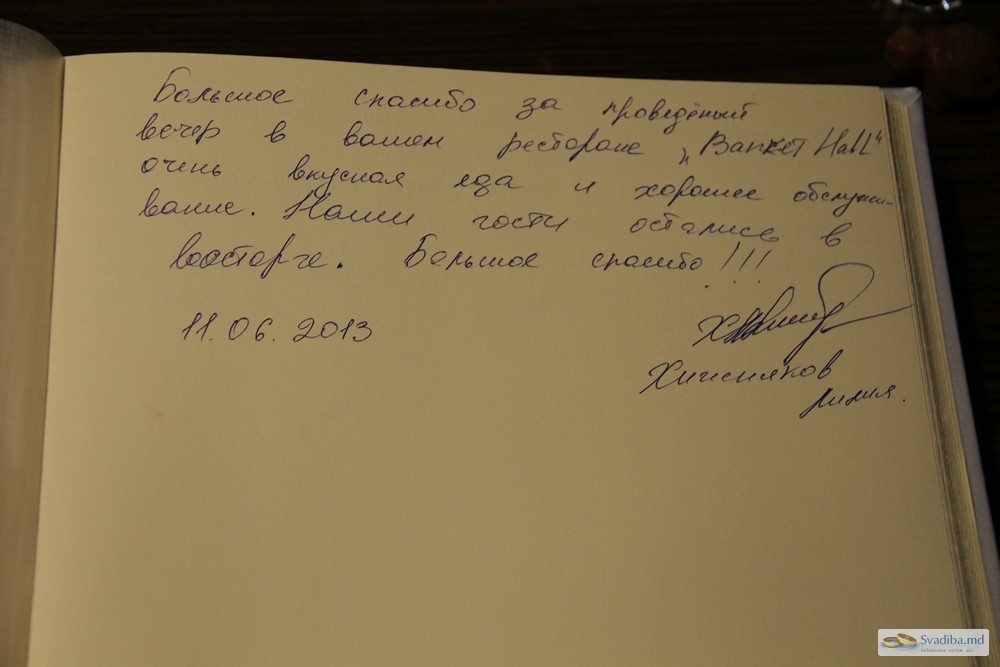 Большое спасибо за проведёный
вечер в вашем ресторане „Banket Hall"
очень вкусная еда и хорошее обслужи-
вание. Наши гости остались в
восторге. Большое спасибо!!!
11.06.2013
Лилия.
Svadiba.md